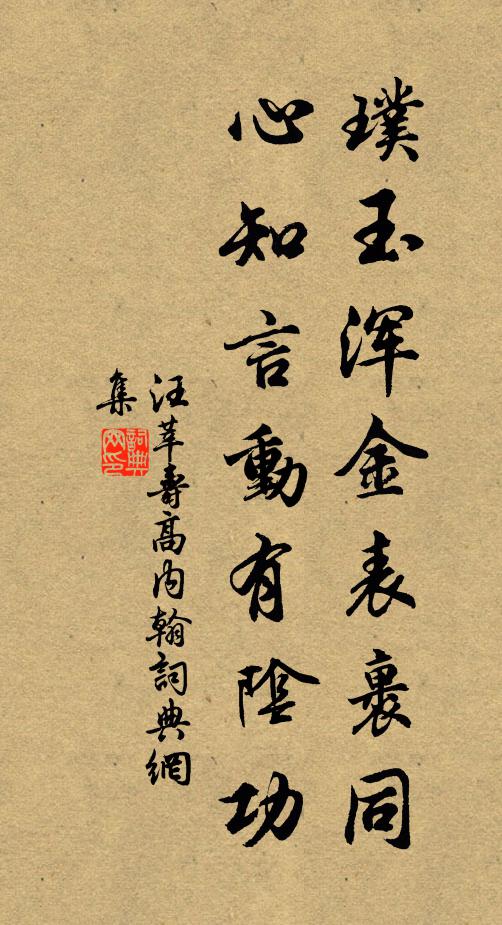 璞玉浑金表裹同
心知言動有陰功
汪莘壽高内翰詞典網
集
詞典網印